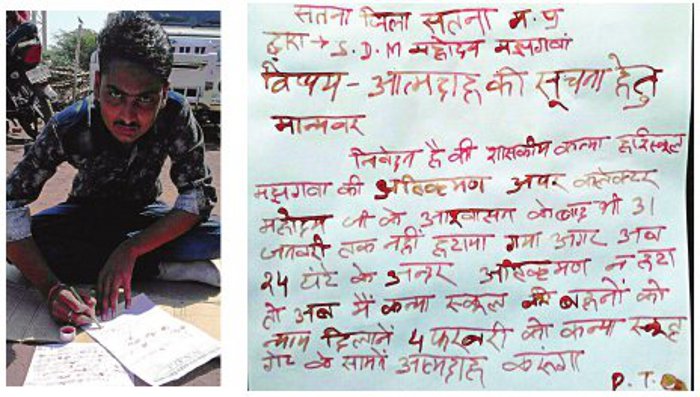 सतना जिला सतना म.प्र
द्वारा → S.D.M महोदय मझगवां
विषय - आत्मदाह की सूचना हेतु
मान्यवर
निवेदन है की शासकीय कन्या हाईस्कूल
मझगवा की अतिक्रमण अपर कलेक्टर
महोदय जी के आश्वासन के बाद भी 31
जनवरी तक नहीं हटाया गया अगर अब
24 घंटे के अन्दर अतिक्रमण न हटा
तो अब मैं कन्या स्कूल की बहनों को
न्याय दिलाने 4 फरवरी को कन्या स्कूल
गेट के सामने आत्मदाह करूगा
P.T.